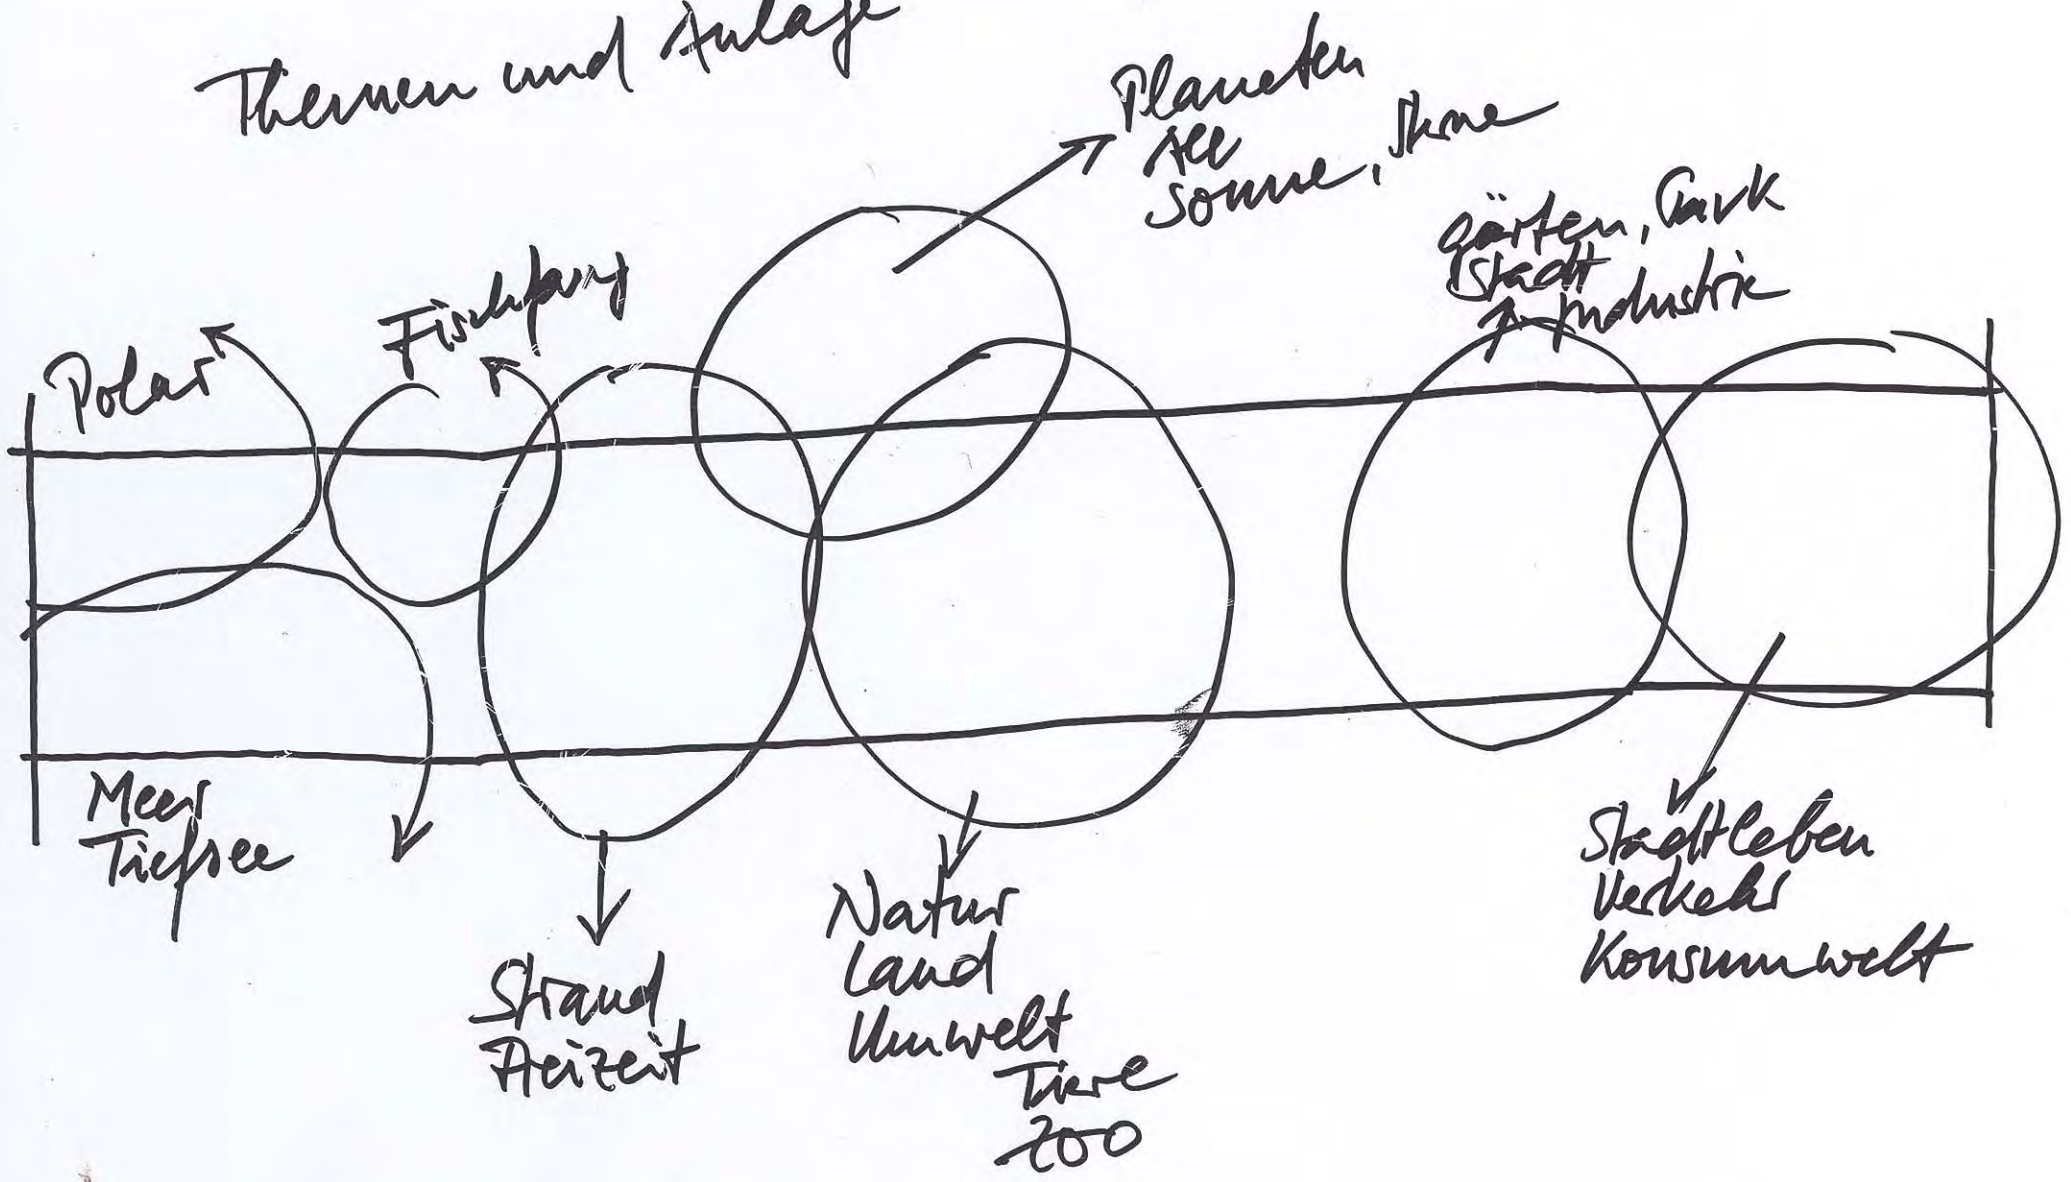 Themen und Anlage
Planeten
All
Sonne, Sterne
Gärten, Park
Stadt
Industrie
Fischfang
Polar
Meer
Tiefsee
Strand
Freizeit
Natur
Land
Umwelt
Tiere
Zoo
Stadtleben
Verkehr
Konsumwelt